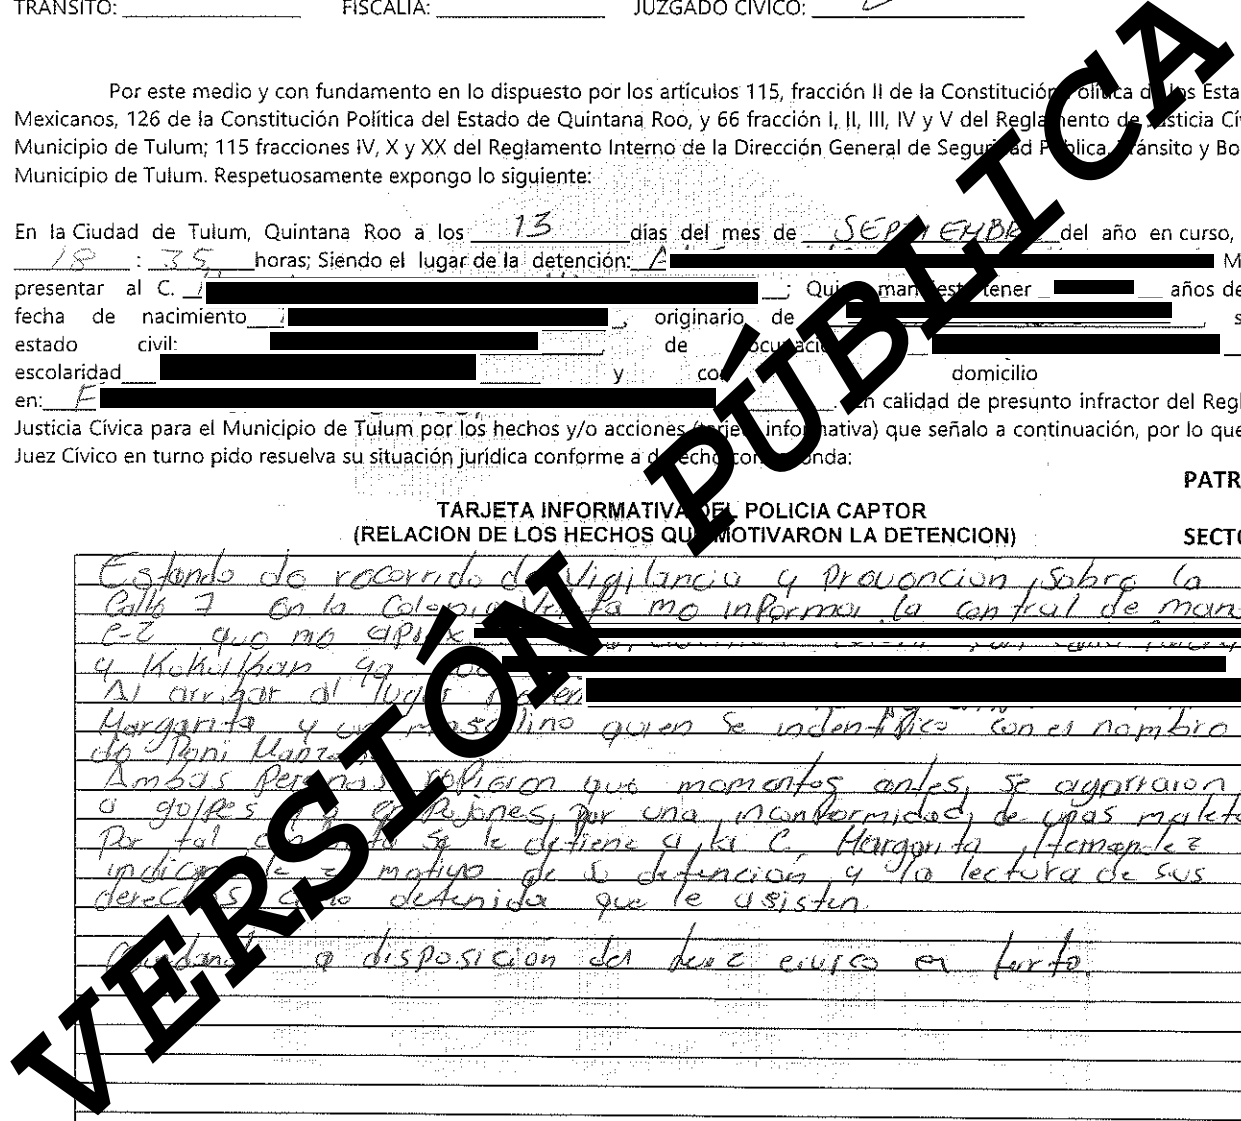 TRÁNSITO: FISCALÍA: JUZGADO CÍVICO:
Por este medio y con fundamento en lo dispuesto por los artículos 115, fracción II de la Constitución Política de los Esta
Mexicanos, 126 de la Constitución Política del Estado de Quintana Roo, y 66 fracción I, II, III, IV y V del Reglamento de Justicia Cí
Municipio de Tulum; 115 fracciones IV, X y XX del Reglamento Interno de la Dirección General de Seguridad Pública, Tránsito y Bo
Municipio de Tulum. Respetuosamente expongo lo siguiente:
En la Ciudad de Tulum, Quintana Roo a los 13 días del mes de SEPTIEMBRE del año en curso,
18 : 35 horas; Siendo el lugar de la detención: A M
presentar al C. ; Quien manifiesta tener años de
fecha de nacimiento , originario de s
estado civil: , de ocupación
escolaridad y con domicilio
en: F . En calidad de presunto infractor del Regl
Justicia Cívica para el Municipio de Tulum por los hechos y/o acciones (tarjeta informativa) que señalo a continuación, por lo que
Juez Cívico en turno pido resuelva su situación jurídica conforme a derecho corresponda:
PATR
TARJETA INFORMATIVA DEL POLICIA CAPTOR
(RELACION DE LOS HECHOS QUE MOTIVARON LA DETENCION) SECTO
Estando de recorrido de Vigilancia y Prevencion, Sobre la
Calle 7 en la Colonia me informa la central de man
C-2 que me
y Kukulkan
Al arribar al lugar
Margarita y un masculino quien se indentifico con el nombre
de
Ambas Personas que momentos antes, se agarraron
a golpes empujones, por una inconformidad, de unas maleta
Por tal se le detiene a la C. Margarita Hernandez
motivo de su detencion y la lectura de sus
derechos como detenida que le asisten.
a disposicion del Juez civico en turno.
VERSIÓN PÚBLICA